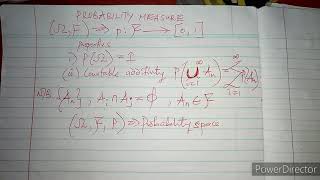 PROBABILITY MEASURE
(Ω, F) ⇒ P: F → [0, 1]
i) P(Ω) = 1
(ii) Countable additivity P(⋃_{i=1}^{∞} A_n) = ∑_{i=1}^{∞} P(A_n)
NB: {A_n}, A_i ∩ A_j = ϕ, A_n ∈ F
(Ω, F, P) ⇒ Probability space.
Made with
PowerDirector